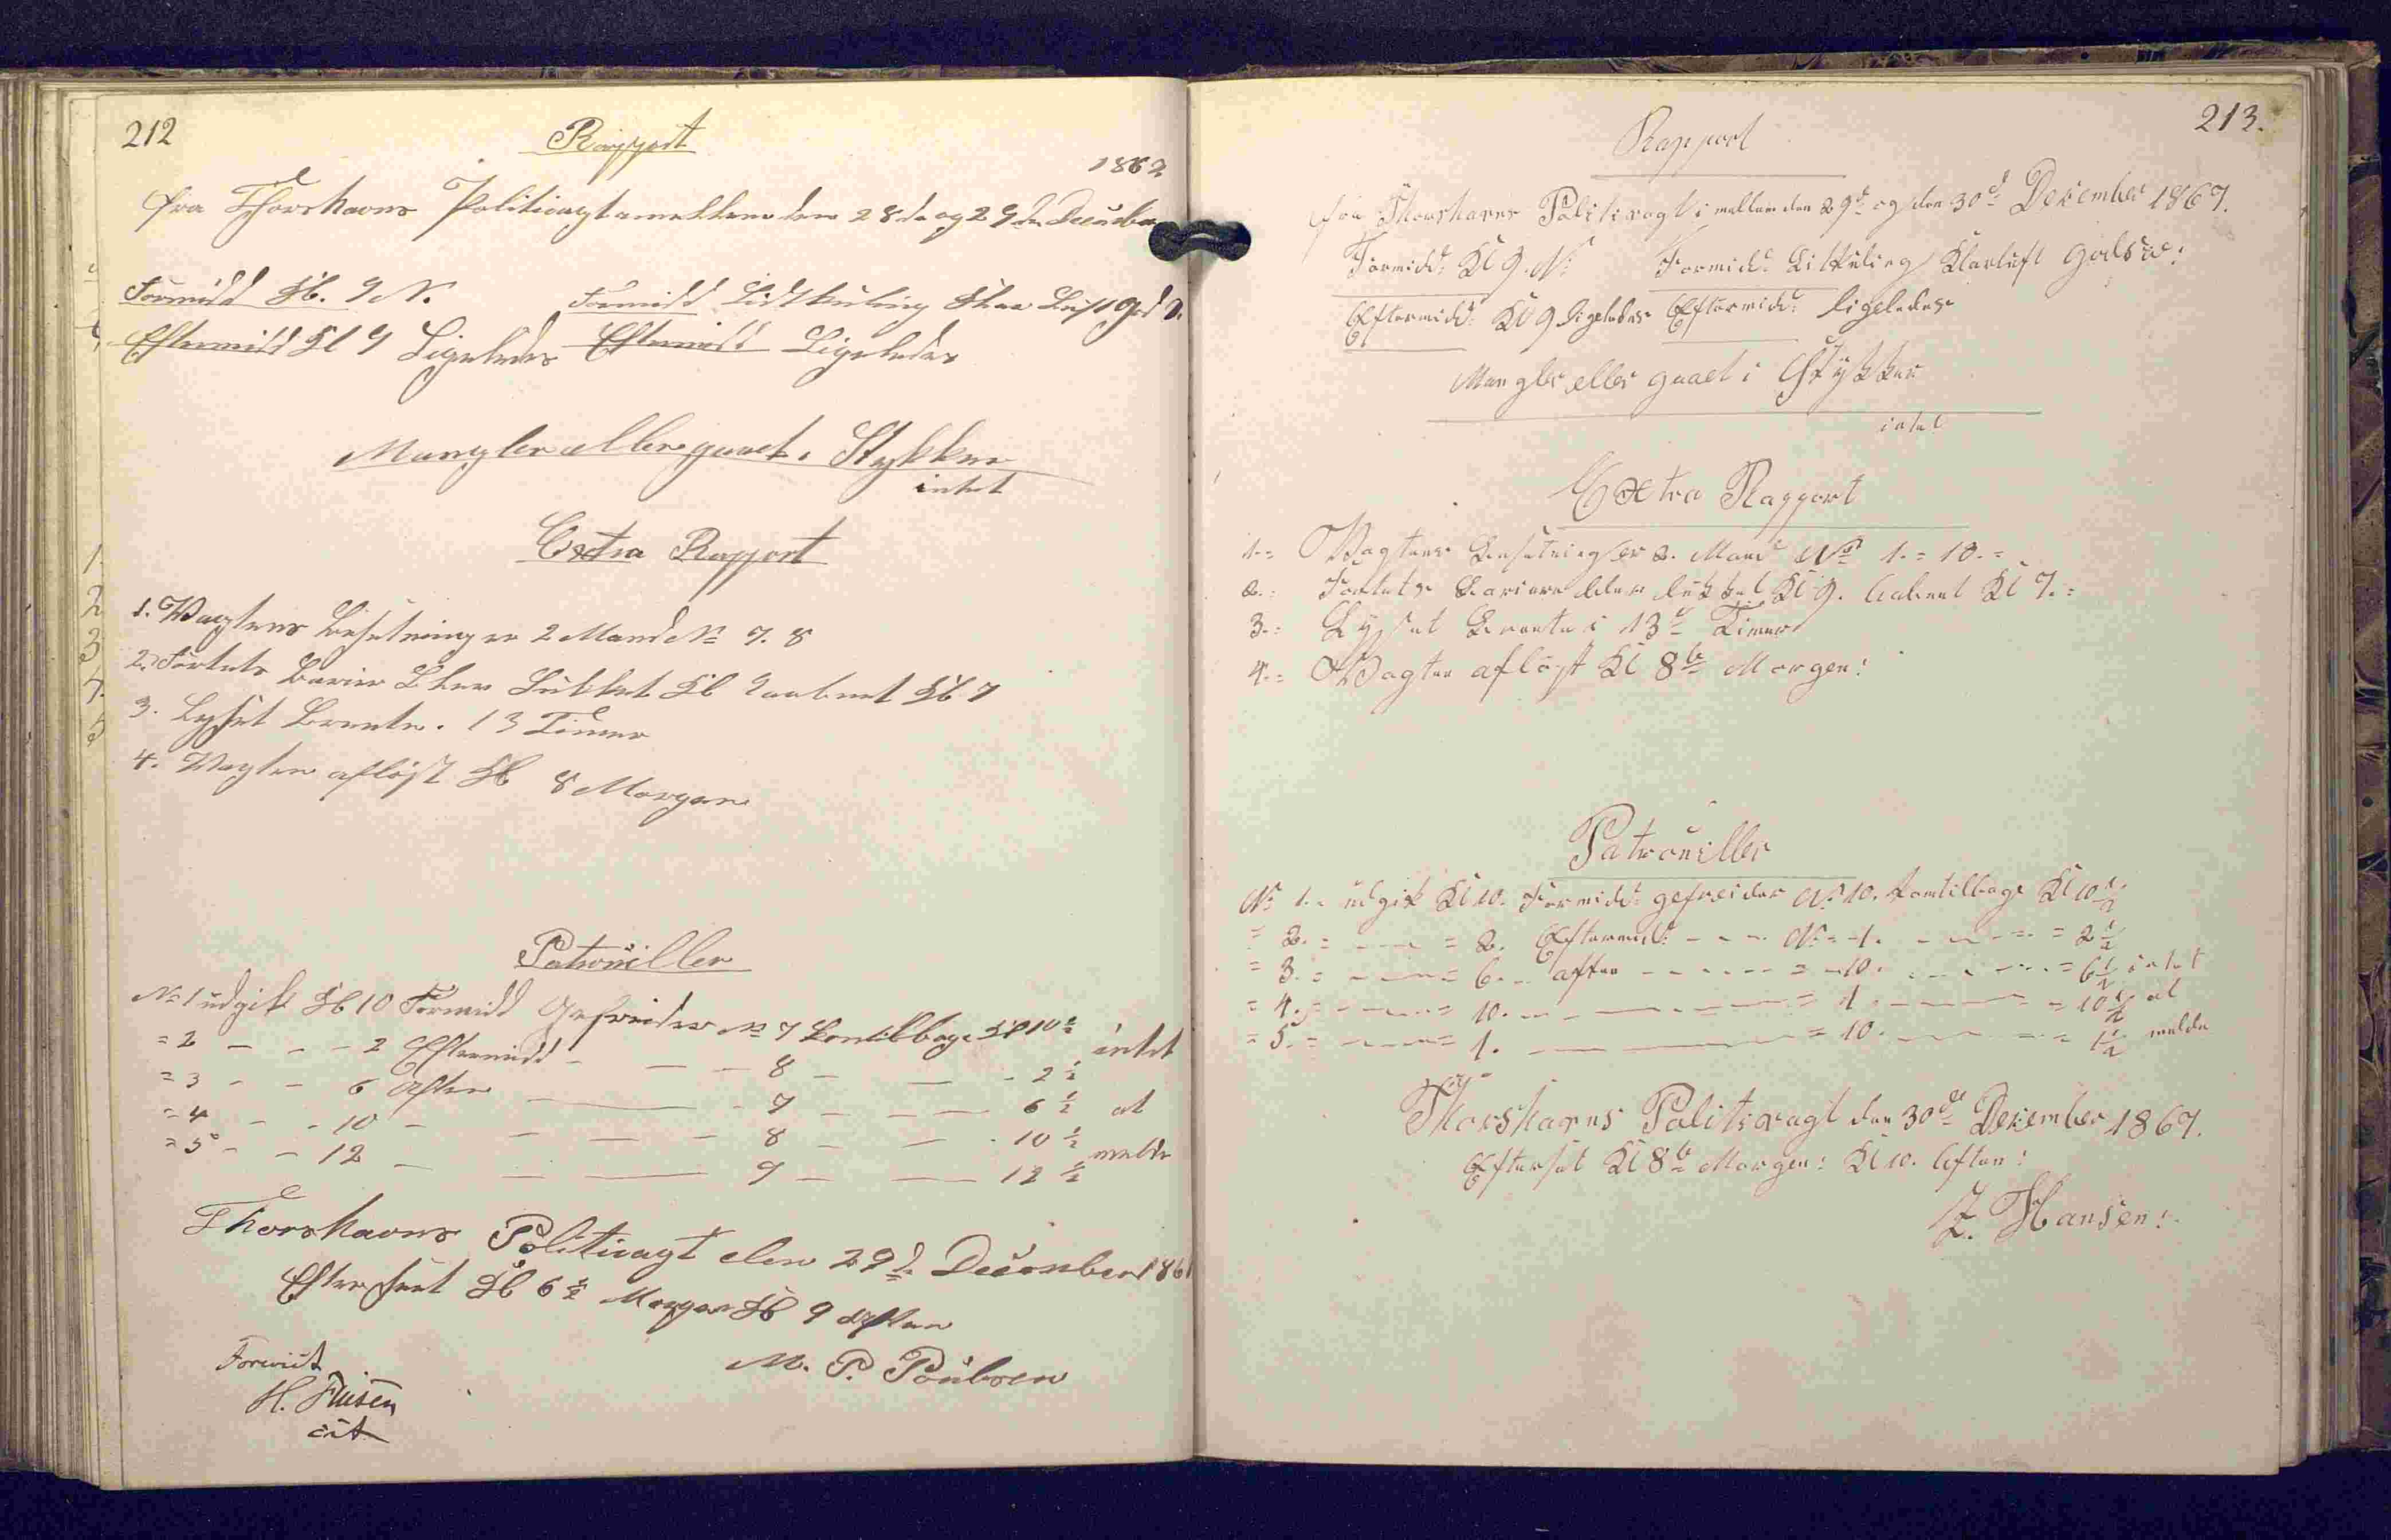 212
Rapport
1862
fra Thorshavns Politivagt imellem den 28de og 29de December
Formidd Kl. 9 N. Formidd Lidt Kuling Klar Luft God V.
Eftermidd Kl 9 Ligeledes Eftermidd Ligeledes
Mangler eller gaaet i Stykker
intet
Extra Rapport
1. Vagtens Besetning er 2 Mand No 7. 8
2. Fortets Barier blev Lukket Kl 9 aabnet Kl 7
3. Lyset Brente. 13 Timer
4. Vagten afløst Kl 8 Morgen
Patrouiller
No 1 udgik Kl 10 Formidd Gefreider No 7 komtilbage Kl 10½ intet
= 2 - - - 2 Eftermidd - - - 8 - - - 2½
= 3 - - 6 Aften - 7 - - - 6½ at
= 4 - - 10 - - - - - 8 - - - 10½
= 5 - - 12 - - - 7 - - 12½ melde
Thorshavns Politivagt den 29d December 186
Efterseet Kl 6½ Morgen Kl 9 Aften
M. P. Poulsen
Foreviist
H.
1.
2
3
4.
5
213.
Rapport
fra Thorshavns Politivagt imellem den 29d og den 30d December 1867.
Formidd: Kl 9. N: Formidd: Lit Kuling Klarluft godt v:
Eftermidd: Kl 9 ligeledes Eftermidd: ligeledes
Mangler eller gaaet i Stykker
intet
Extra Rapport
1.= Vagtens Besetning er 2. Mand No 1. = 10. =
2.= Fortets Bariere blev lukket Kl 9. Aabnet Kl 7. =
3.= Lyset Brente i 13d Timer
4.= Vagten afløst Kl 8te Morgen:
Patrouiller
No 1. - udgik Kl 10. Formidd: gefreider No 10. komtilbage Kl 10½
= 2. = - - - = 2. Eftermidd: - - - No = 1. - - - = 2½
= 3. = - - - = 6. - aften - - - = 10. - - - = 6½ intet
= 4. = - - - = 10. - - - = 1. - - - = 10½ at
= 5. = - - - = 1. - - - = 10. - - - = 1½ melde
Thorshavns Politivagt den 30de December 1867.
Efterset Kl 8te Morgen: Kl 10. Aften:
Z. Hansen: